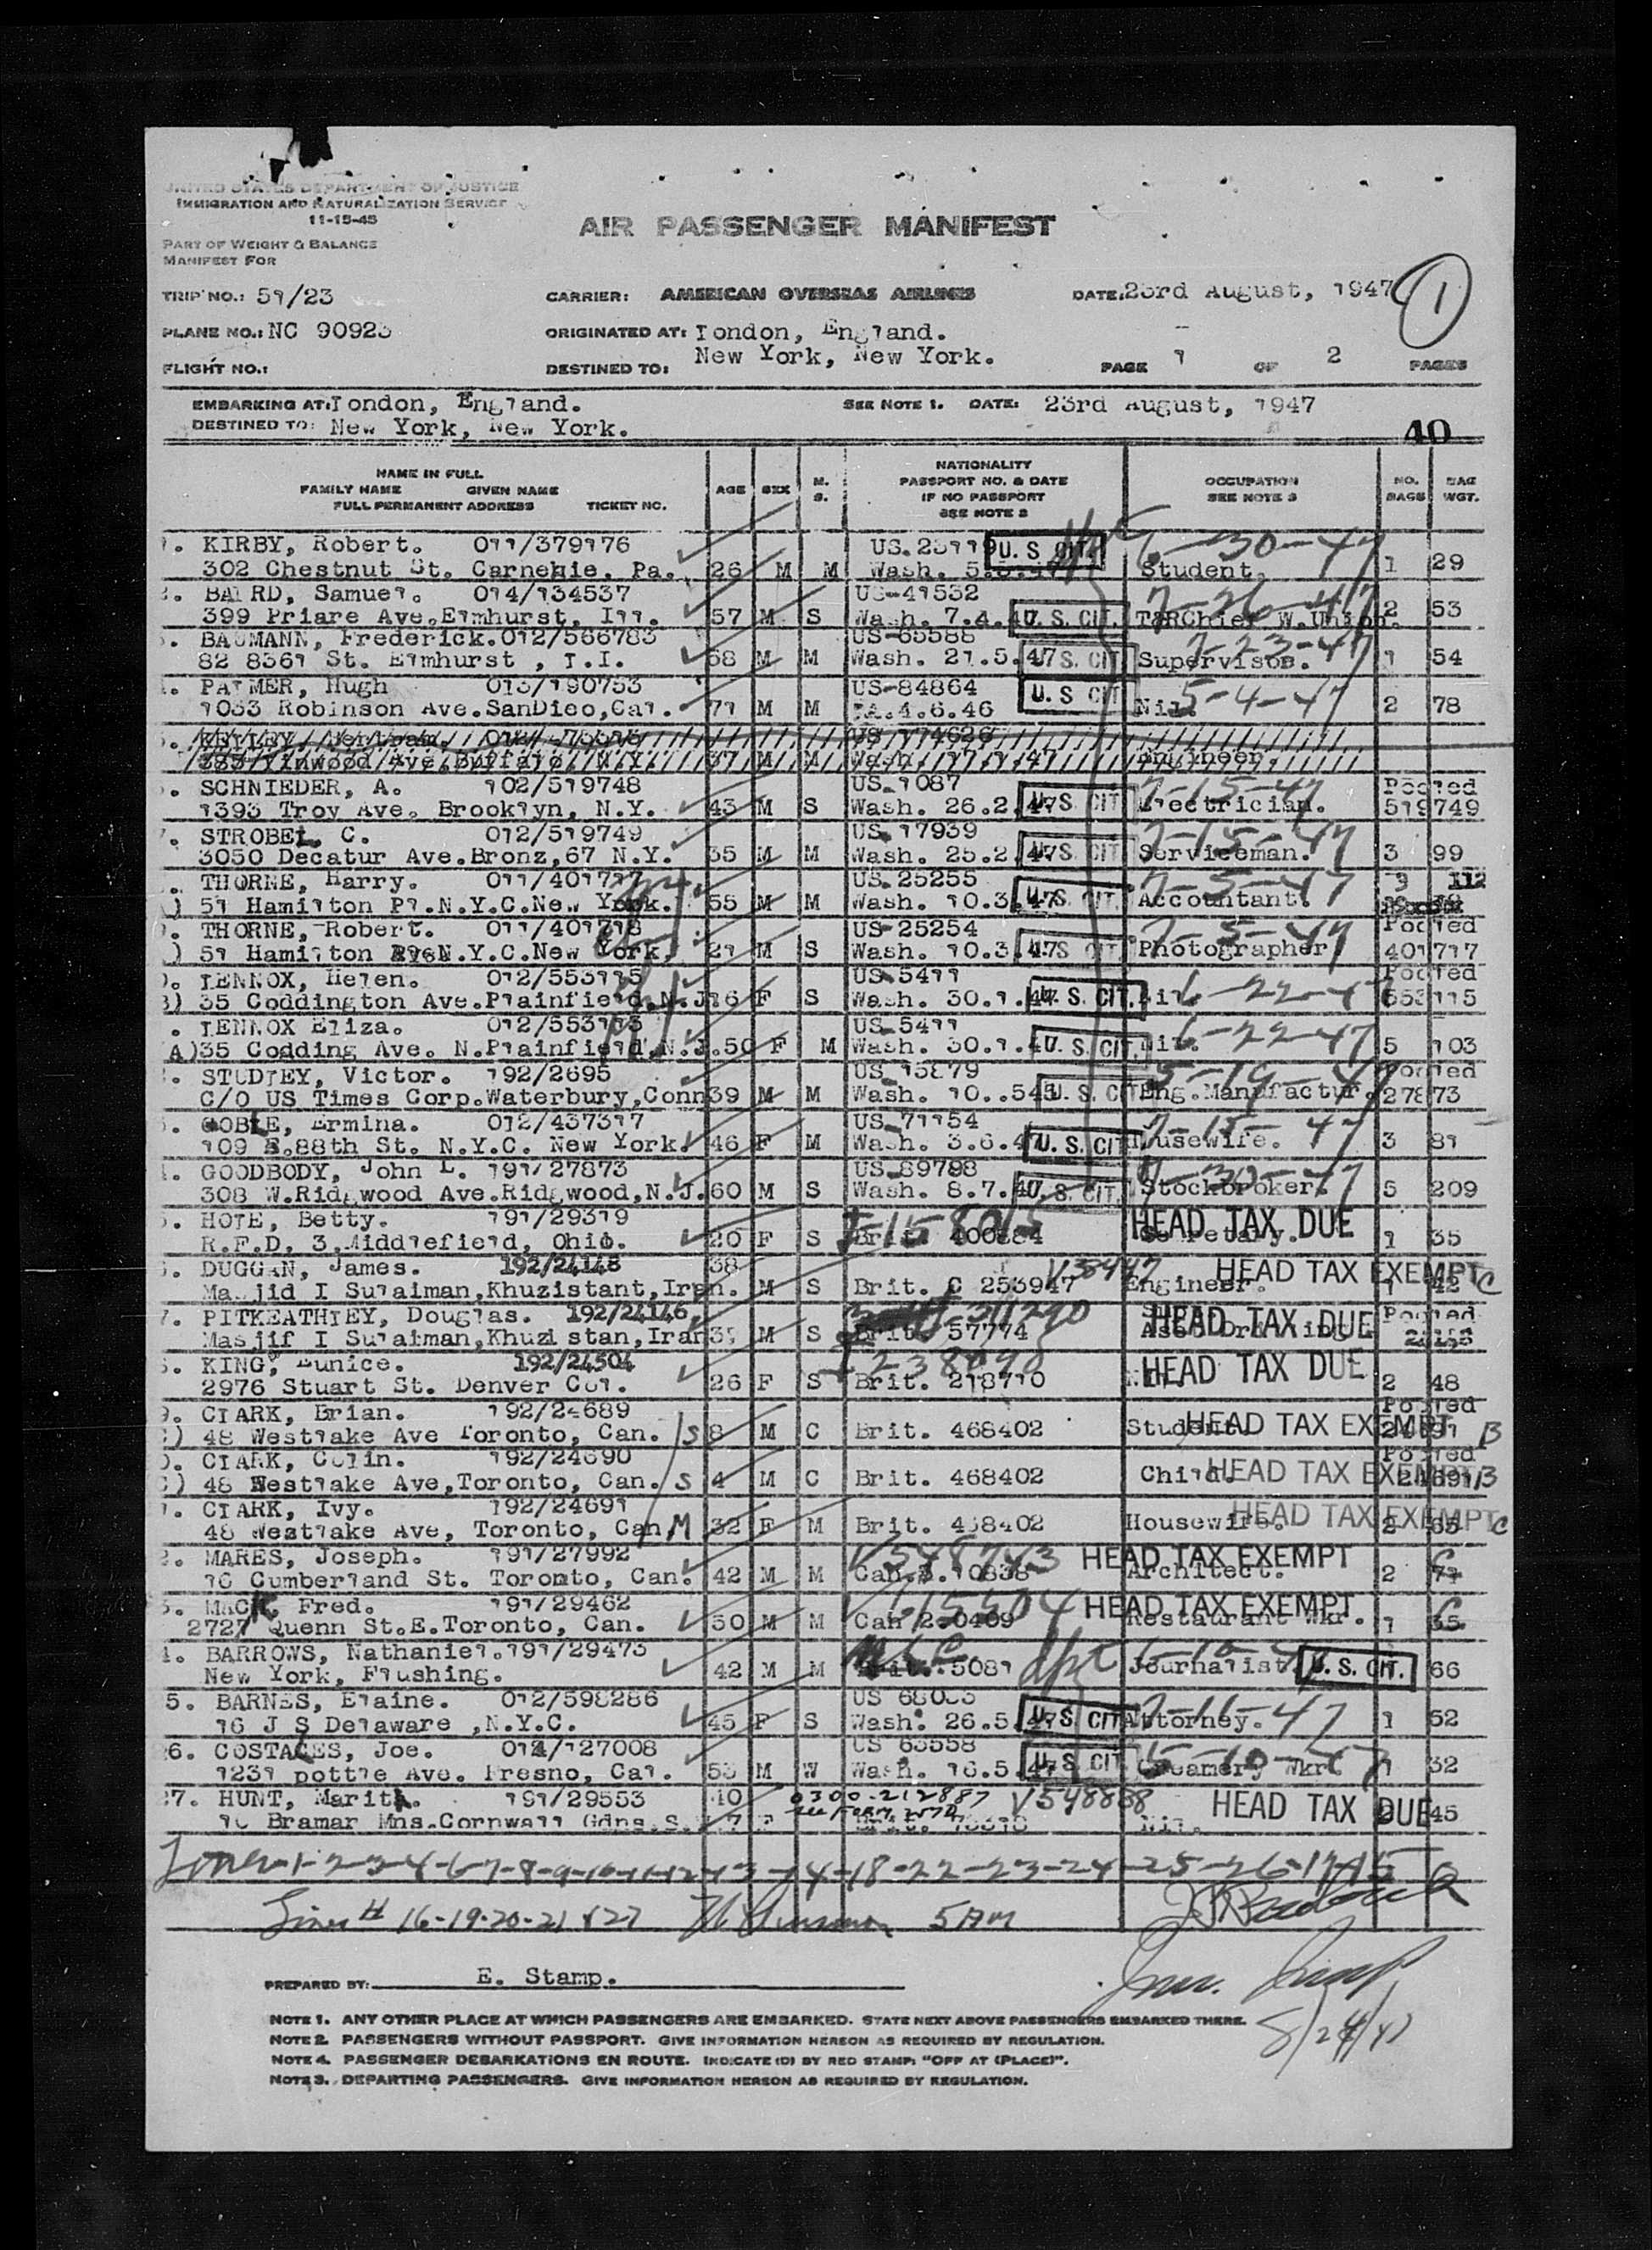 UNITED STATES DEPARTMENT OF JUSTICE
IMMIGRATION AND NATURALIZATION SERVICE
11-15-45
AIR PASSENGER MANIFEST
PART OF WEIGHT & BALANCE
MANIFEST FOR
TRIP NO.: 51/23 CARRIER: AMERICAN OVERSEAS AIRLINES DATE: 23rd August, 1947 1
PLANE NO.: NC 90923 ORIGINATED AT: London, England.
FLIGHT NO.: DESTINED TO: New York, New York. PAGE 1 OF 2 PAGES
EMBARKING AT: London, England. SEE NOTE 1. DATE: 23rd August, 1947
DESTINED TO: New York, New York. 40
NAME IN FULL
FAMILY NAME GIVEN NAME
FULL PERMANENT ADDRESS TICKET NO.
AGE SEX M. S.
NATIONALITY
PASSPORT NO. & DATE
IF NO PASSPORT
SEE NOTE 2
OCCUPATION
SEE NOTE 3
NO. BAGS
BAG WGT.
1. KIRBY, Robert. 011/379176 US. U. S CIT. 6-30-47
302 Chestnut St. Carnehie, Pa. 26 M M Wash. Student. 1 29
2. BAIRD, Samuel. 014/134537 US-41532 7-26-47
399 Priare Ave.Elmhurst, Ill. 57 M S Wash. 7.4.47 U. S. CIT. W.Union. 2 53
3. BAUMANN, Frederick.012/566783 US-65588 7-23-47
82 8361 St. Elmhurst , L.I. 58 M M Wash. 21.5.47 U S. CIT Supervisor. 1 54
4. PALMER, Hugh 013/190753 US-84864 U. S CIT 5-4-47
1033 Robinson Ave.SanDieo,Cal. 71 M M 4.6.46 Nil. 2 78
US 174626
385 Linwood Ave.Buffalo, N.Y. 37 M M Wash. 17.1.47 Engineer.
6. SCHNIEDER, A. 102/519748 US.1087 7-15-47 Pooled
1393 Troy Ave. Brooklyn, N.Y. 43 M S Wash. 26.2.47 U. S CIT Electrician. 519749
7. STROBEL C. 012/519749 US. 17939 7-15-47
3050 Decatur Ave.Bronz,67 N.Y. 35 M M Wash. 25.2.47 U S. CIT Serviceman. 3 99
THORNE, Harry. 011/401717 US. 25255 7-5-47 3 112
A) 51 Hamilton Pl.N.Y.C.New York. 55 M M Wash. 10.3.47 U.S. CIT Accountant.
9. THORNE, Robert. 011/401718 US-25254 7-5-47 Pooled
A) 51 Hamilton N.Y.C.New York. 21 M S Wash. 10.3.47 U S CIT Photographer 401717
LENNOX, Helen. 012/553115 US.5411 6-22-47 Pooled
B) 35 Coddington Ave.Plainfield.N.J. 16 F S Wash. 30.1.47 U. S. CIT. Nil. 553115
LENNOX Eliza. US.5411 6-22-47
A) 35 Codding Ave. N.Plainfield,N.J. 50 F M Wash. 30.1.47 U. S. CIT. Nil. 5 103
STUDLEY, Victor. 192/2695 US 15879 5-19-47 Pooled
C/O US Times Corp.Waterbury,Conn 39 M M Wash. 10..545 U. S. CIT Eng.Manufactur. 27873
GOBLE, Ermina. 012/437317 US-71154 7-15-47
109 E.88th St. N.Y.C. New York. 46 F M Wash. 3.6.47 U. S. CIT Housewife. 3 81
GOODBODY, John L. 191/27873 US.89798
308 W.Ridgwood Ave.Ridgwood,N.J. 60 M S Wash. 8.7.47 U. S. CIT. Stockbroker. 5 209
HOLE, Betty. 191/29319 HEAD TAX DUE
R.F.D. 3.Middlefield, Ohio. 20 F S Brit. 400884 Secretary. 1 35
DUGGAN, James. 192/24148 38 V38447 HEAD TAX EXEMPT
Masjid I Sulaiman,Khuzistant,Iran. M S Brit. C 253947 Engineer. 1 42 C
7. PITKEATHLEY, Douglas. 192/24146 HEAD TAX DUE Pooled
Masjif I Sulaiman,Khuzistan,Iran M S Brit. 57774
KING, Eunice. 192/24504 I 238090 HEAD TAX DUE
2976 Stuart St. Denver Col. 26 F S Brit. 218710 2 48
9. CLARK, Brian. 192/24689 Pooled
C) 48 Westlake Ave Toronto, Can. S 8 M C Brit. 468402 Student. HEAD TAX EXEMPT 24691 B
CLARK, Colin. 192/24690 Pooled
C) 48 Westlake Ave,Toronto, Can. S 4 M C Brit. 468402 Child HEAD TAX EXEMPT 24691 B
CLARK, Ivy. 192/24691 HEAD TAX EXEMPT
48 Westlake Ave, Toronto, Can. M 32 F M Brit. 468402 Housewife. 2 65 C
2. MARES, Joseph. 191/27992 V548743 HEAD TAX EXEMPT C
16 Cumberland St. Toronto, Can. 42 M M Can. 10838 Architect. 2 71
MACK, Fred. 191/29462 HEAD TAX EXEMPT C
2727 Quenn St.E.Toronto, Can. 50 M M Can 2.0409 Restaurant Wkr. 1 35
BARROWS, Nathaniel.191/29473
New York, Flushing. 42 M M 5081 Journalist. U. S. CIT. 66
5. BARNES, Elaine. 012/598286 US 7-11-47
16 J S Delaware ,N.Y.C. 45 F S Wash. 26.5.47 U. S. CIT Attorney. 1 52
6. COSTALES, Joe. 014/127008 US 63558 5-10-47
1231 pottle Ave. Fresno, Cal. 53 M W Wash. 16.5.47 U. S CIT Creamery Wkr 1 32
27. HUNT, Marita. 191/29553 0300-212887 V548838 HEAD TAX DUE
16 Bramar Mns.Cornwall Gdns.S. F Brit. Nil. 45
Lines-1-2-3-4-6-7-8-9-10-11-12-13-14-18-22-23-24-25-26-17-15
Lines # 16-19-20-21 & 27
PREPARED BY: E. Stamp.
Imm. Insp
8/24/47
NOTE 1. ANY OTHER PLACE AT WHICH PASSENGERS ARE EMBARKED. STATE NEXT ABOVE PASSENGERS EMBARKED THERE.
NOTE 2. PASSENGERS WITHOUT PASSPORT. GIVE INFORMATION HEREON AS REQUIRED BY REGULATION.
NOTE 4. PASSENGER DEBARKATIONS EN ROUTE. INDICATE (D) BY RED STAMP: "OFF AT (PLACE)".
NOTE 3. DEPARTING PASSENGERS. GIVE INFORMATION HEREON AS REQUIRED BY REGULATION.